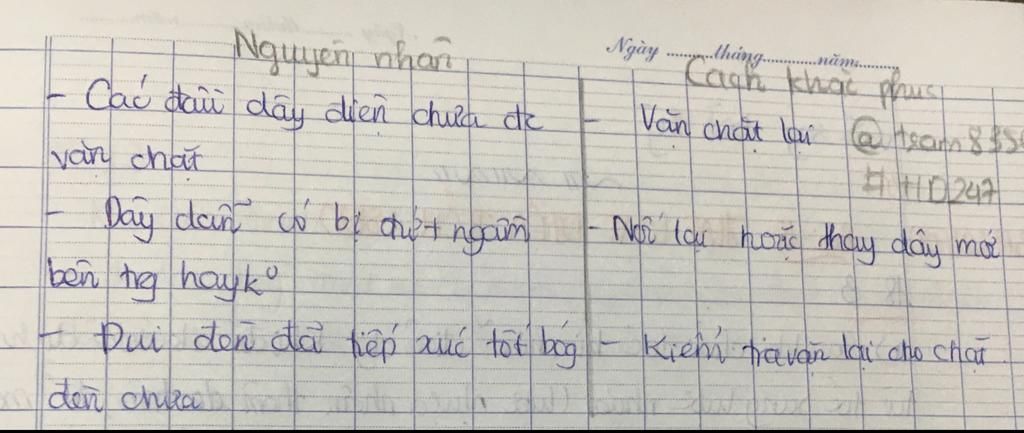 Ngày ........tháng............năm.........
Nguyên nhân
Cách khắc phục
- Các đầu dây điện chưa đc
vặn chặt
- Vặn chặt lại
@team8
# HD247
- Dây dẫn có bị đứt ngầm
bên tg hay k°
- Nối lại hoặc thay dây mới
- Đui đèn đã tiếp xúc tốt bóg
đèn chưa
- Kiểm tra vặn lại cho chặt